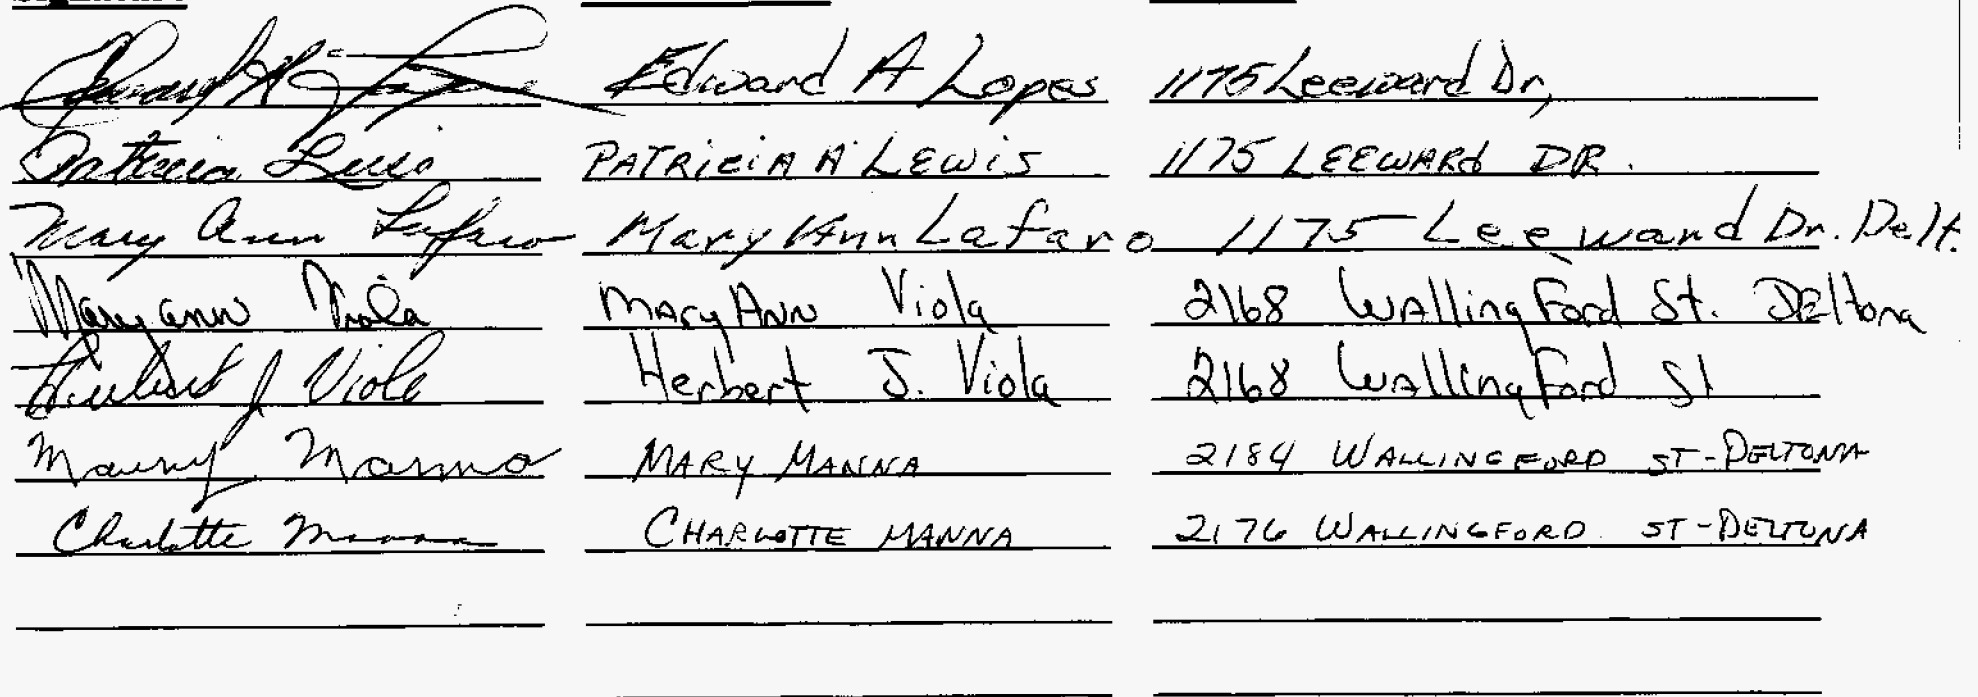 Edward A Lopes Edward A Lopes 1175 Leeward Dr,
Patricia Lewis PATRICIA A LEWIS 1175 LEEWARD DR.
Mary Ann Lafaro Mary Ann Lafaro 1175 Leeward Dr. Delt.
Maryann Viola MaryAnn Viola 2168 Wallingford St. Deltona
Herbert J Viola Herbert J. Viola 2168 Wallingford St
Mary Manna MARY MANNA 2184 WALLINGFORD ST-DELTONA
Charlotte Manna CHARLOTTE MANNA 2176 WALLINGFORD ST-DELTONA